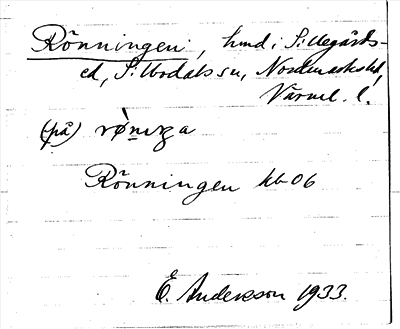 Rönningen, hmd i Sillegårds-
ed, S:llbodals sn, Nordmarks hd,
Värml. l.
(på) rø̀nıŋa
Rönningen kb 06
E. Andersson 1933.